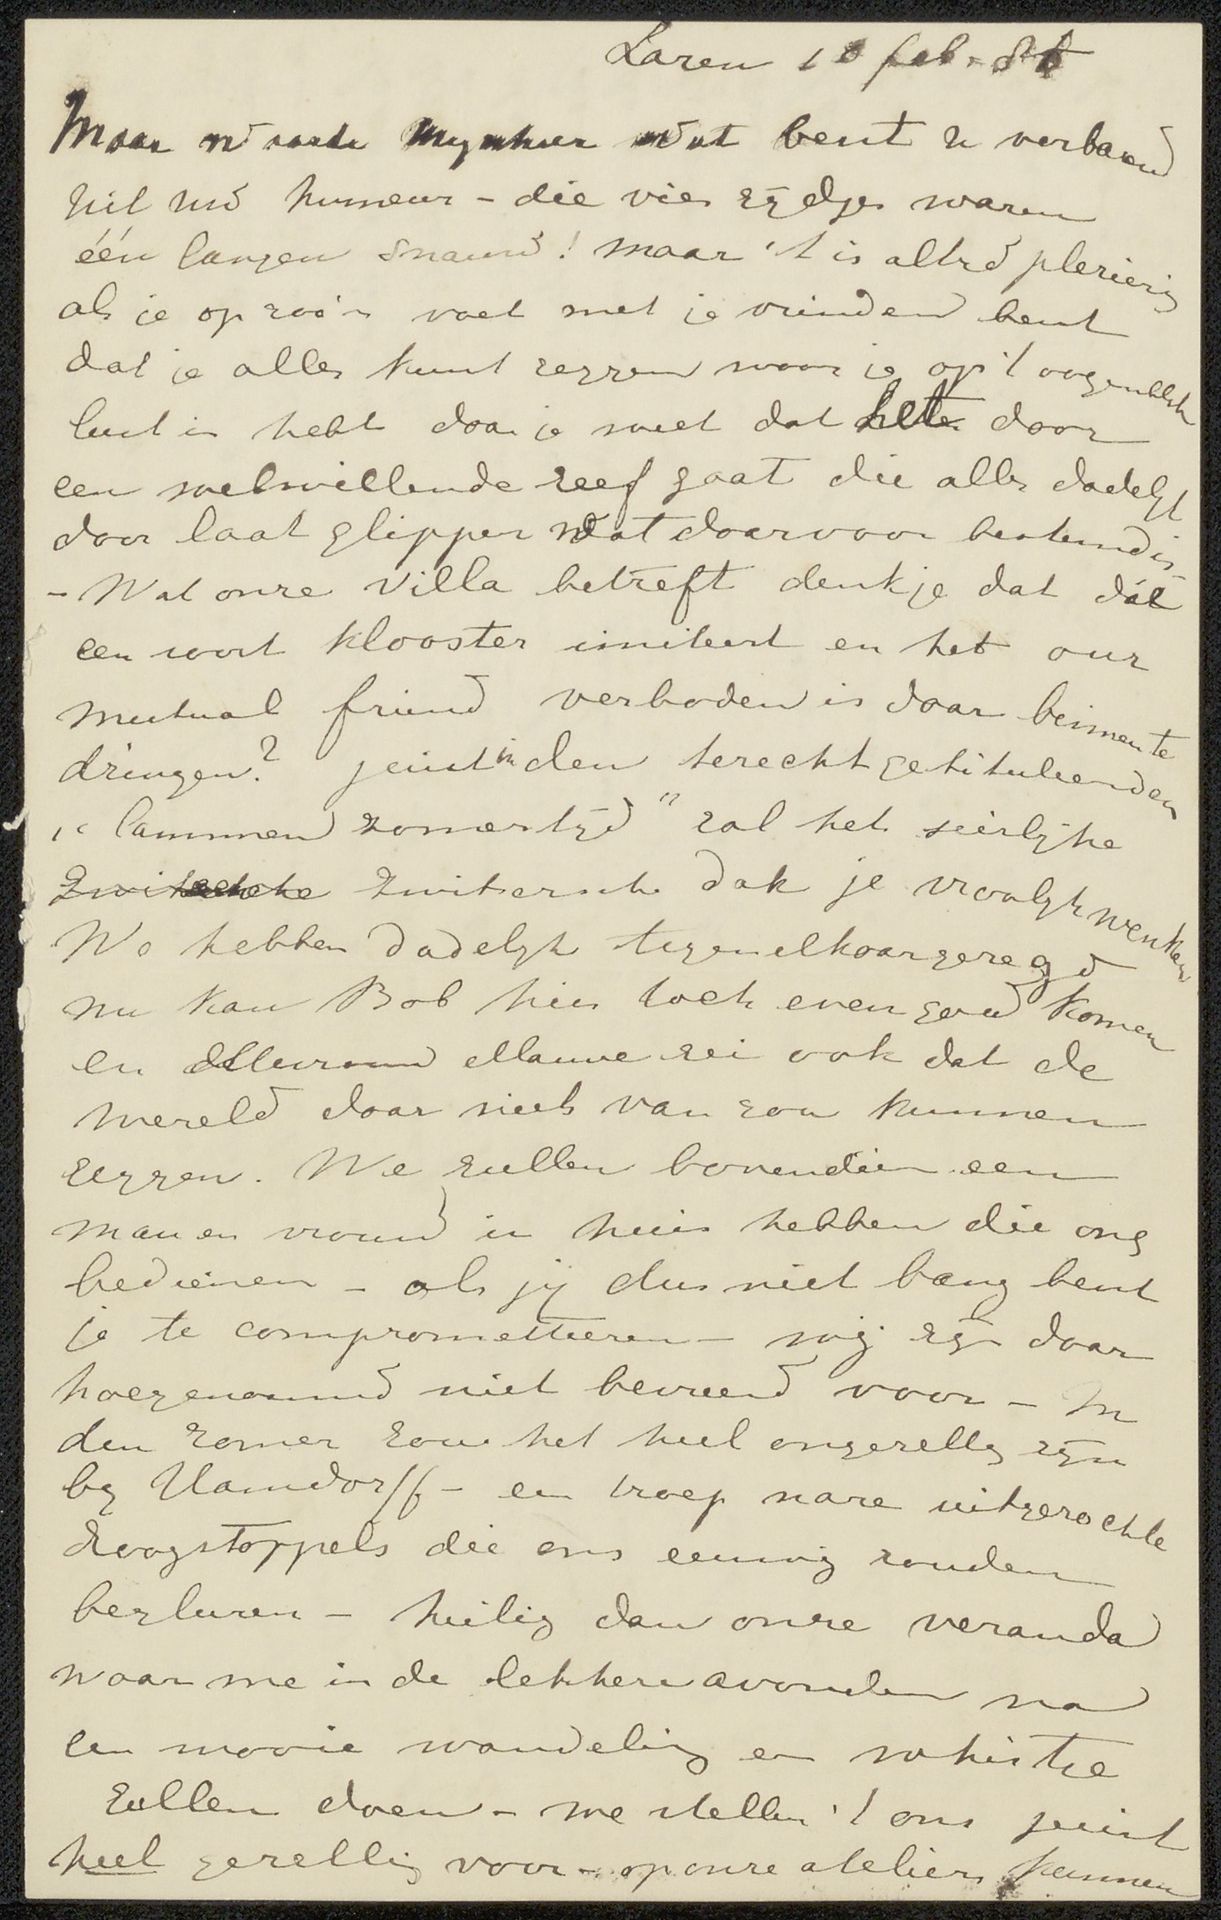 Laren 10 feb.
Maar waarde mynheer wat bent u verbaasd
uit uw humeur - die vier zydjes waren
één langen snauw! maar 't is altyd plezierig
als je op zoo'n voet met je vrienden bent
dat je alles kunt zeggen waar je op 't oogenblik
lust in hebt daar je weet dat het door
een welwillende zeef gaat die alles dadelyk
door laat glippen wat daarvoor bestemd is.
- Wat onze villa betreft denk je dat dát
een soort klooster imiteert en het our
mutual friend verboden is daar binnen te
dringen? juist in den terecht getituleerden
"lammen zomertyd" zal het sierlyke
Zwitsersche dak je vroolyk wenken
We hebben dadelyk tegen elkaar gezegd
nu kan Bob hier toch even goed komen
en Mevrouw Mauve zei ook dat de
wereld daar niets van zou kunnen
zeggen. We zullen bovendien een
man en vrouw in huis hebben die ons
bedienen - als jy dus niet bang bent
je te compromitteeren - wij zyn daar
hoegenaamd niet bevreesd voor - In
den zomer zou het heel ongezellig zyn
by Hamdorff - een troep nare uitgezochte
droogstoppels die ons eeuwig zouden
begluren - heilig dan onze veranda
waar we in de lekkere avonden na
een mooie wandeling en whistje
zullen doen - we stellen 't ons juist
heel gezellig voor - op onze ateliers kunnen